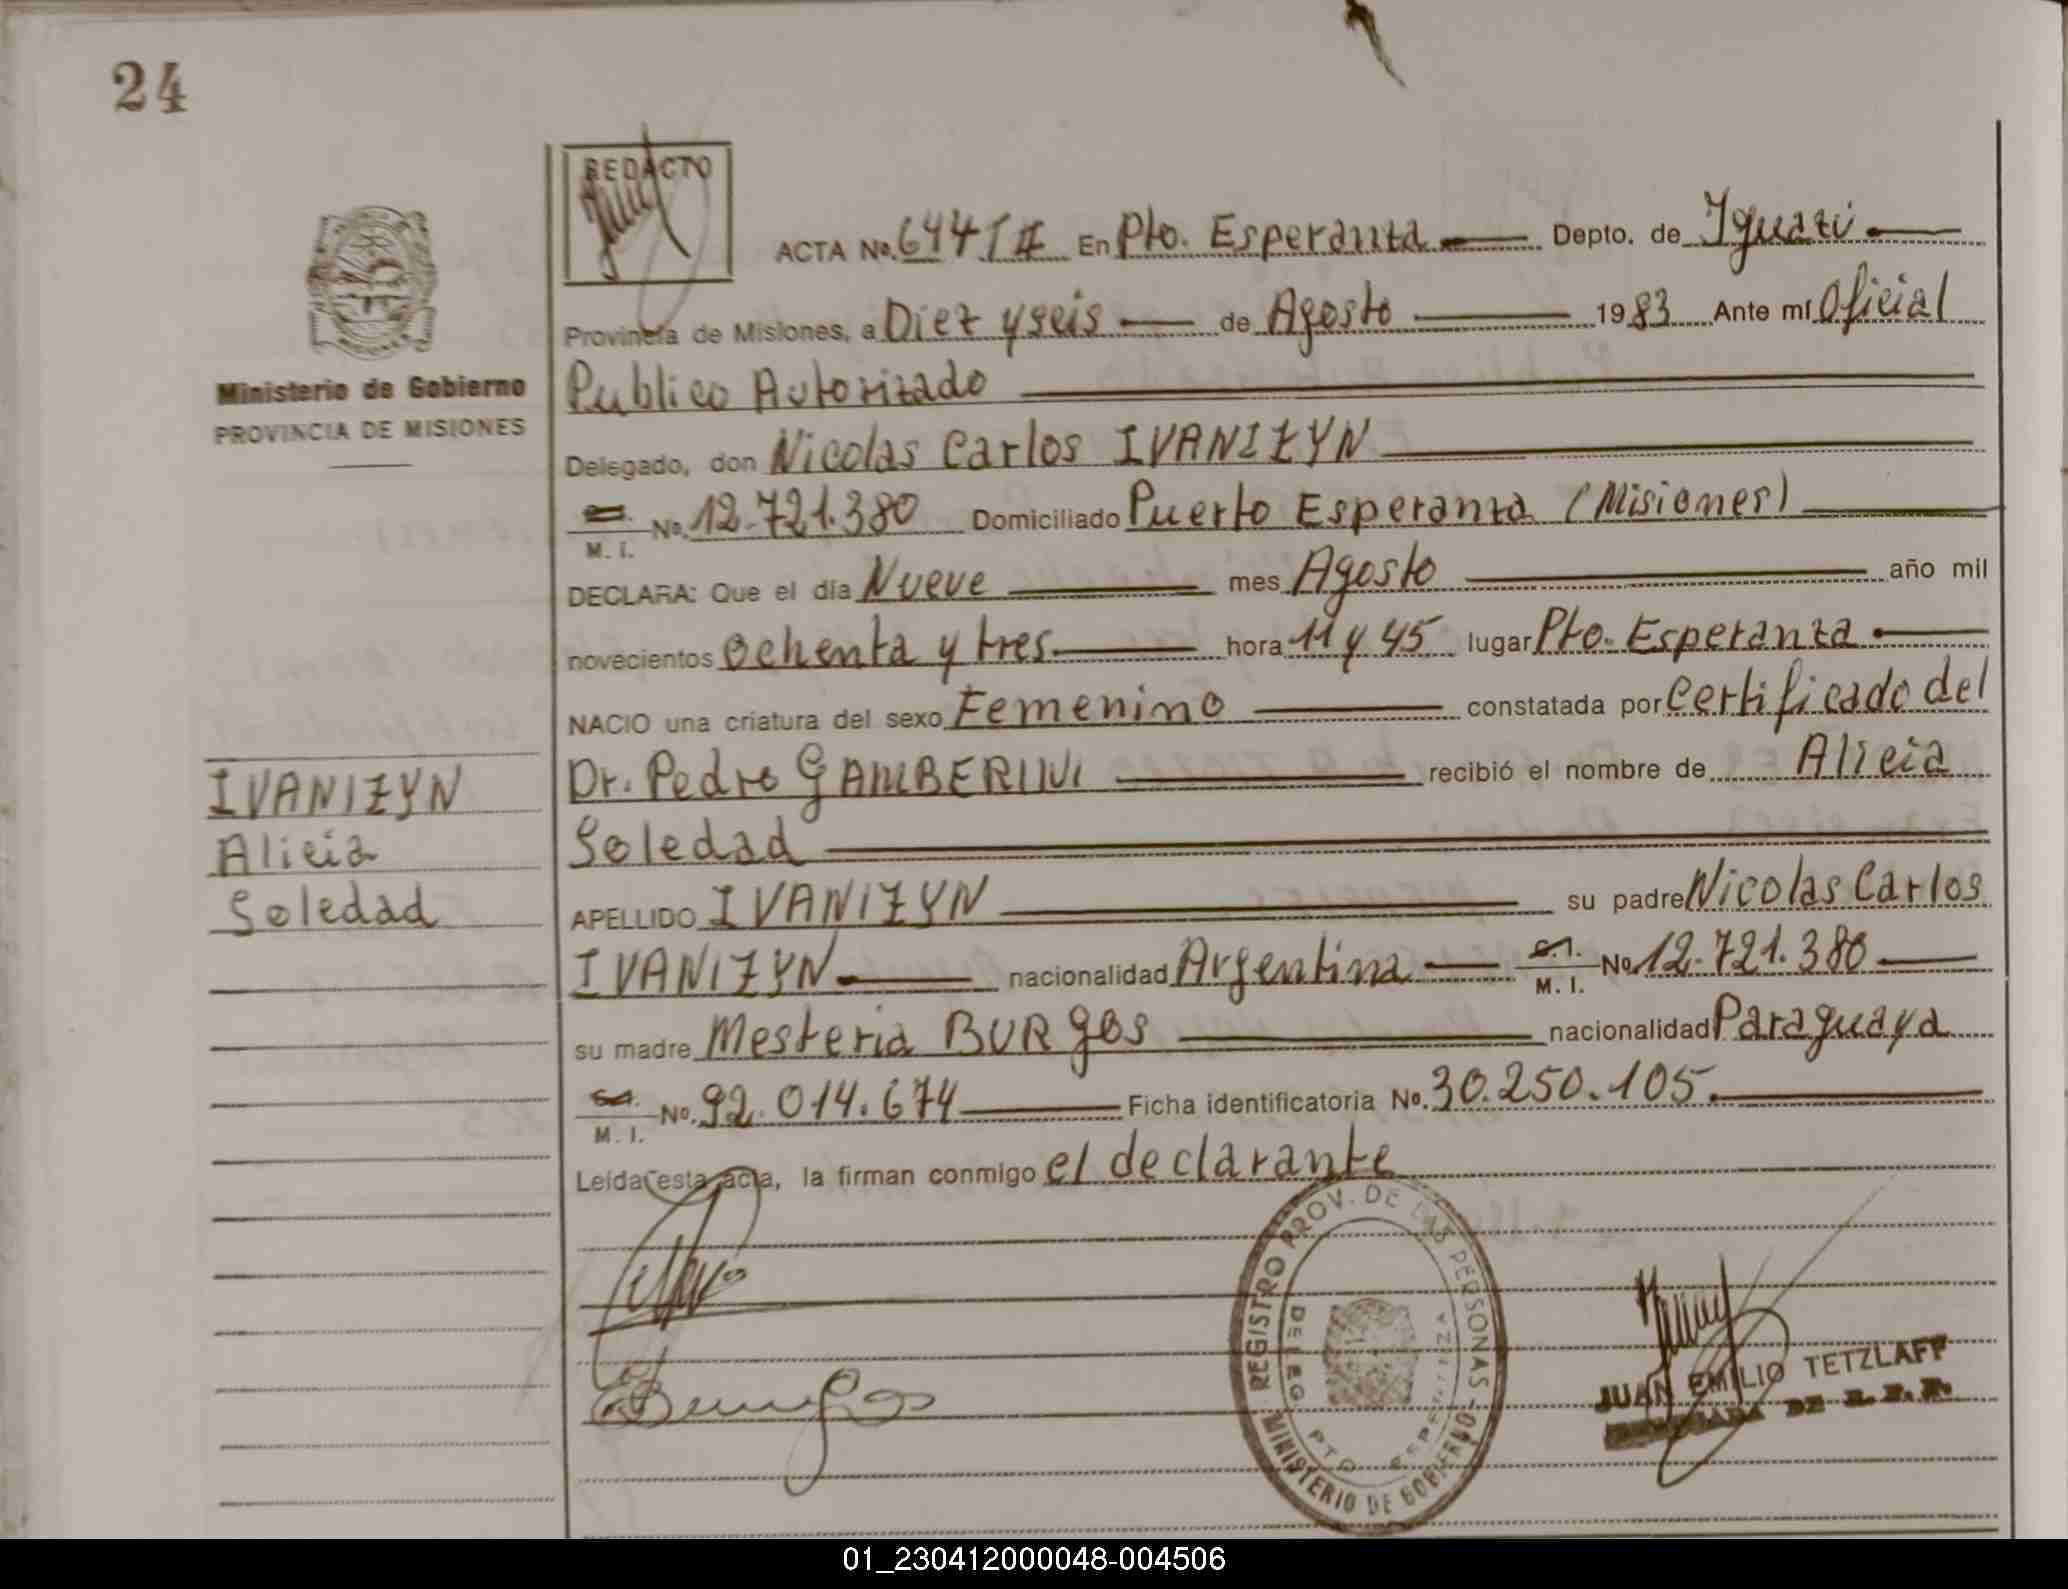 24
REDACTO
ACTA No. 644 T II En Pto. Esperanza Depto. de Iguazú
Provincia de Misiones, a Diez y seis de Agosto 1983 Ante mí Oficial
Publico Autorizado
Ministerio de Gobierno
PROVINCIA DE MISIONES
Delegado, don Nicolas Carlos IVANIZYN
M. I. No. 12.721.380 Domiciliado Puerto Esperanza (Misiones)
DECLARA: Que el día Nueve mes Agosto año mil
novecientos ochenta y tres hora 11 y 45 lugar Pto. Esperanza
NACIO una criatura del sexo Femenino constatada por Certificado del
Dr. Pedro GAMBERINI recibió el nombre de Alicia
Soledad
IVANIZYN
Alicia
Soledad
APELLIDO IVANIZYN su padre Nicolas Carlos
IVANIZYN nacionalidad Argentina M. I. No 12.721.380
su madre Mesteria BURgos nacionalidad Paraguaya
M. I. No. 92.014.674 Ficha identificatoria No. 30.250.105
Leída esta acta, la firman conmigo el declarante
REGISTRO PROV. DE LAS PERSONAS
MINISTERIO DE GOBIERNO
PTO. ESPERANZA
JUAN EMILIO TETZLAFF
DE R. P. P.
01_230412000048-004506